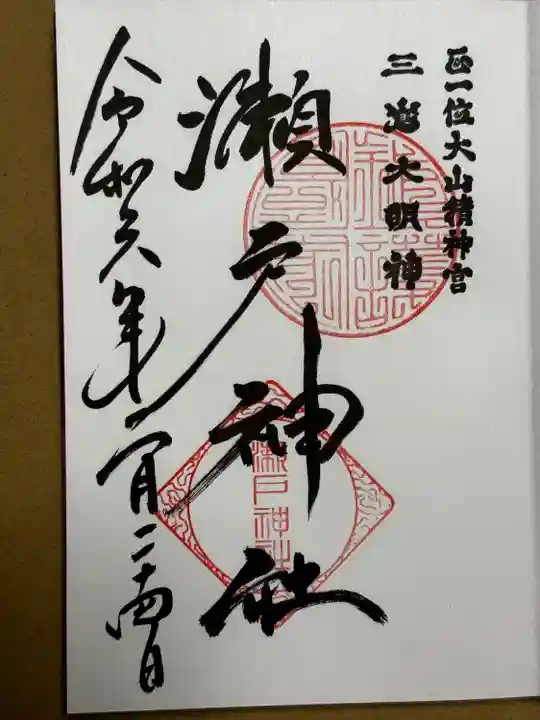 正一位大山積神宮
三嶋大明神
瀬戸神社
瀬戸神社
令和六年一月二十四日